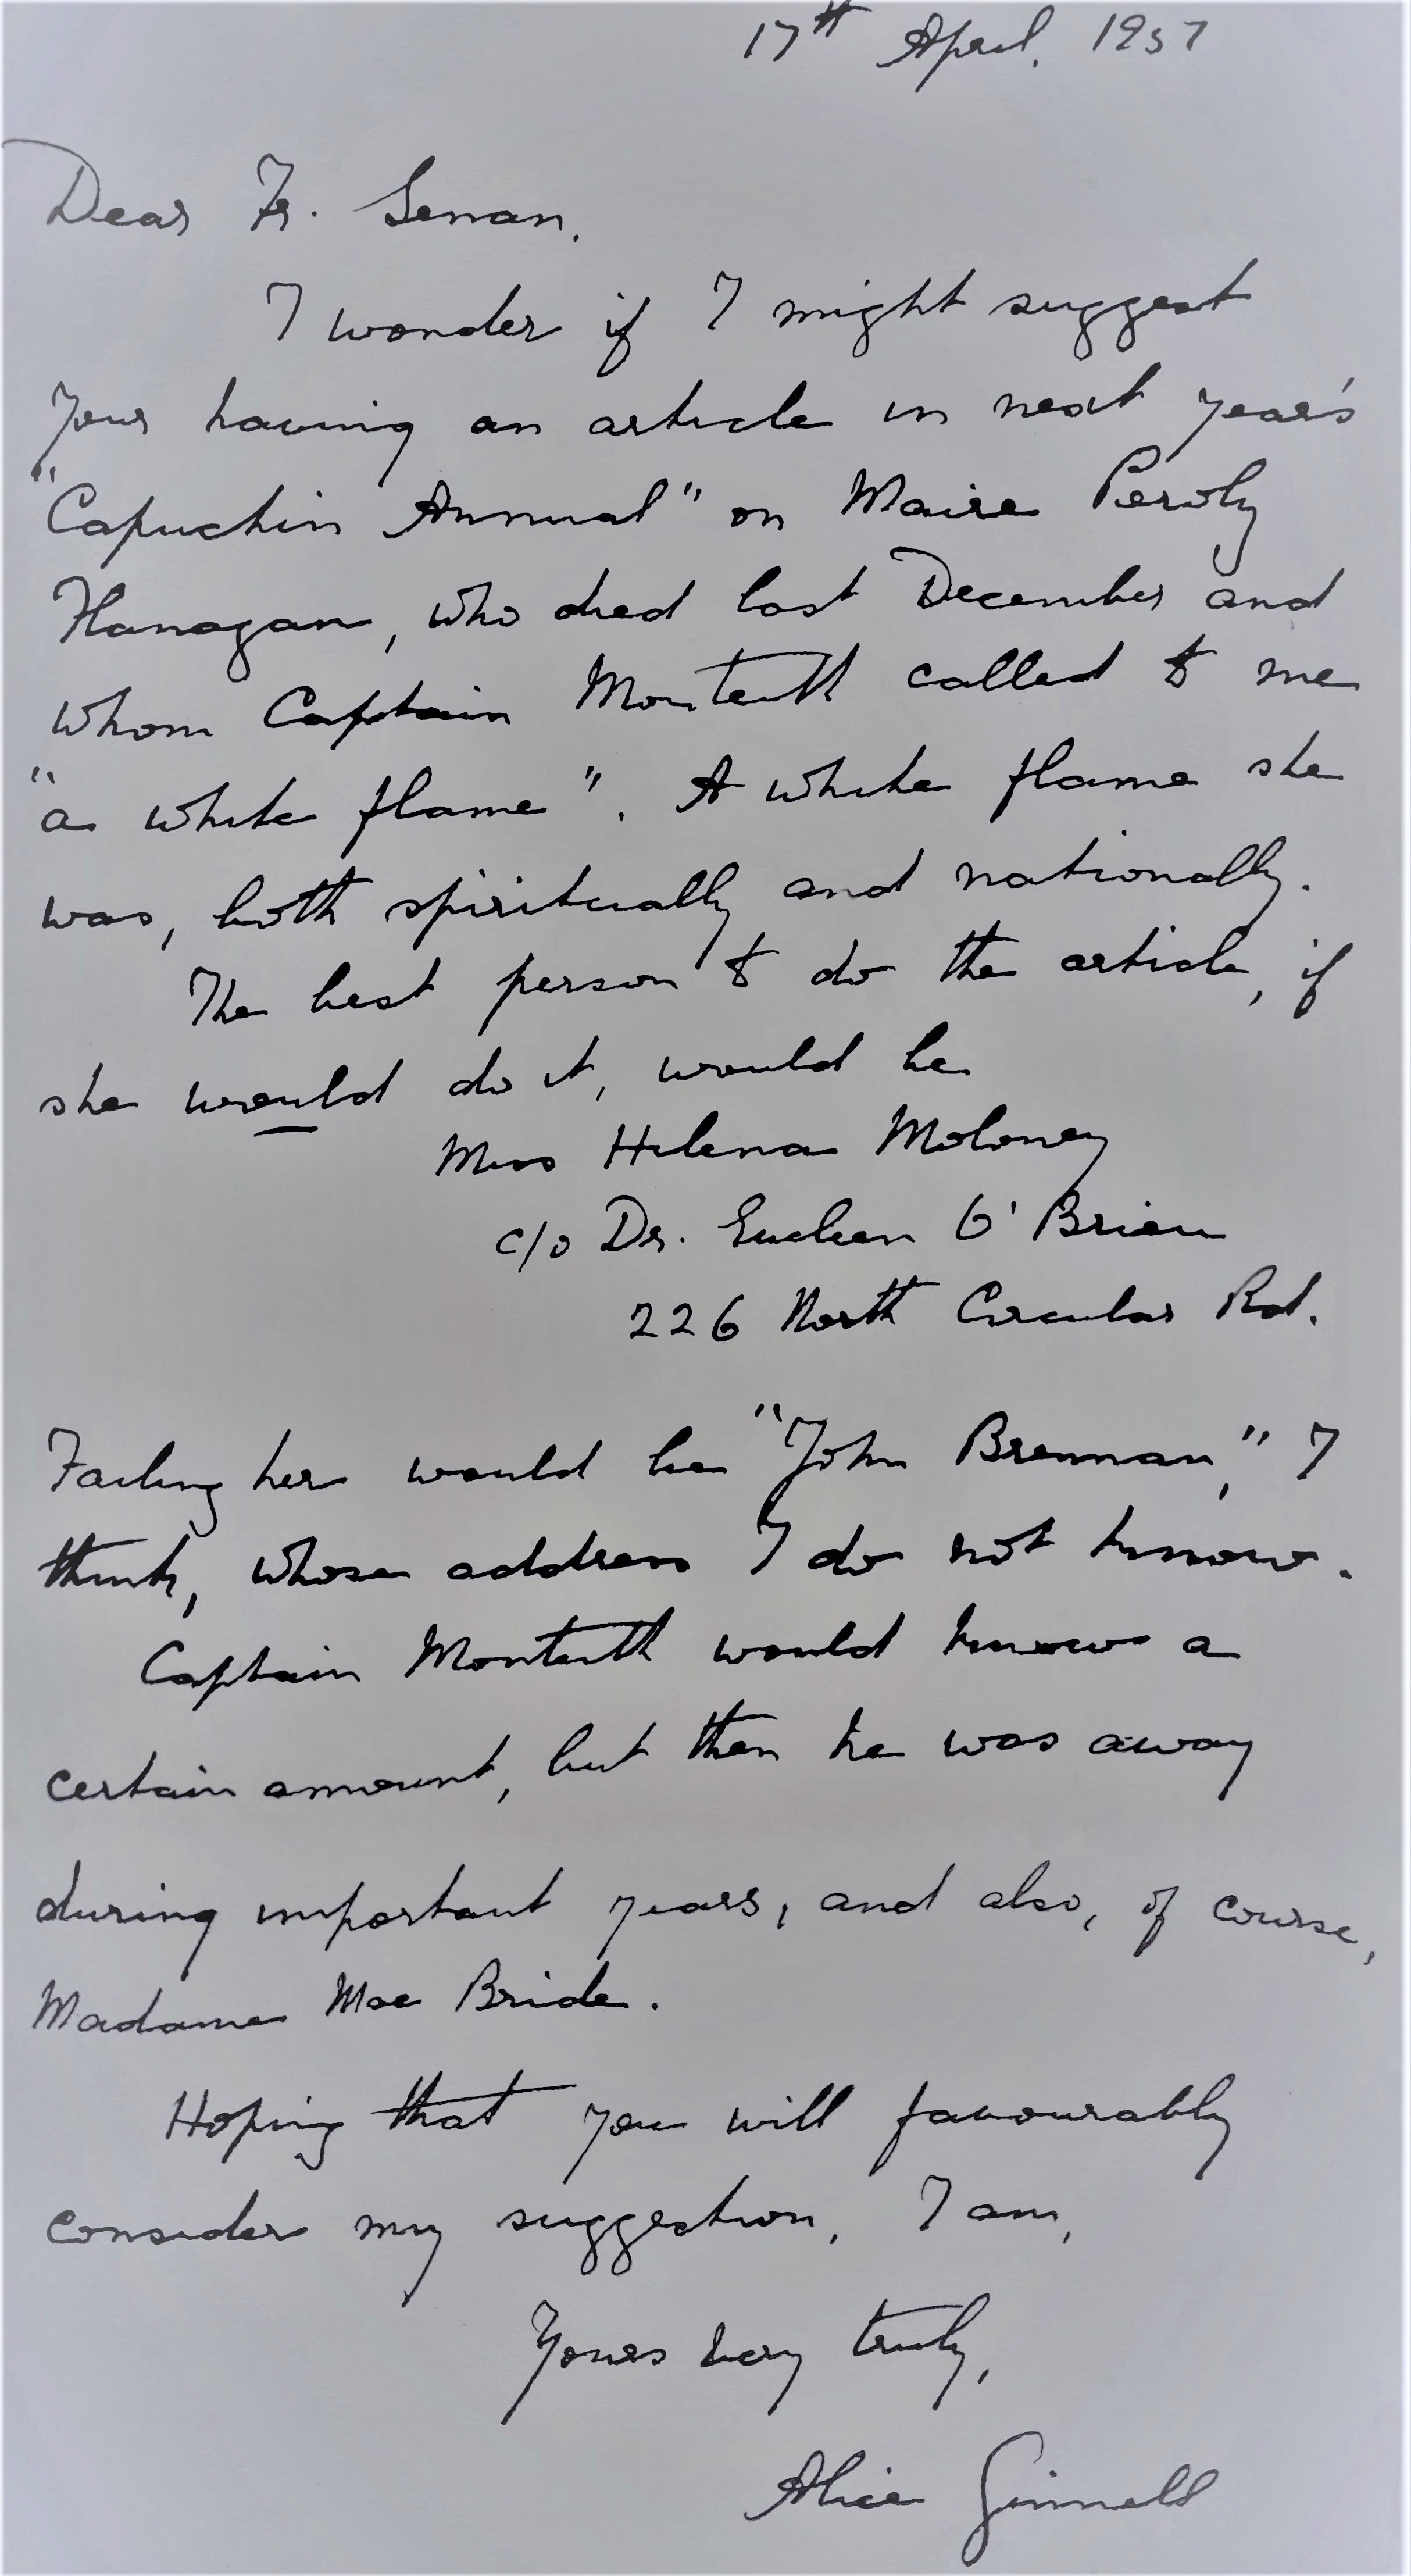 17th April, 1957
Dear Fr. Senan,
I wonder if I might suggest
your having an article in next year's
"Capuchin Annual" on Maire Perolz
Flanagan, who died last December and
whom Captain Monteith called to me
"a white flame". A white flame she
was, both spiritually and nationally.
The best person to do the article, if
she would do it, would be
Miss Helena Moloney
c/o Dr. Eveleen O'Brien
226 North Circular Rd.
Failing her would be "John Brennan," I
think, whose address I do not know.
Captain Monteith would know a
certain amount, but then he was away
during important years, and also, of course,
Madame Mac Bride.
Hoping that you will favourably
consider my suggestion, I am,
Yours very truly,
Alice Ginnell